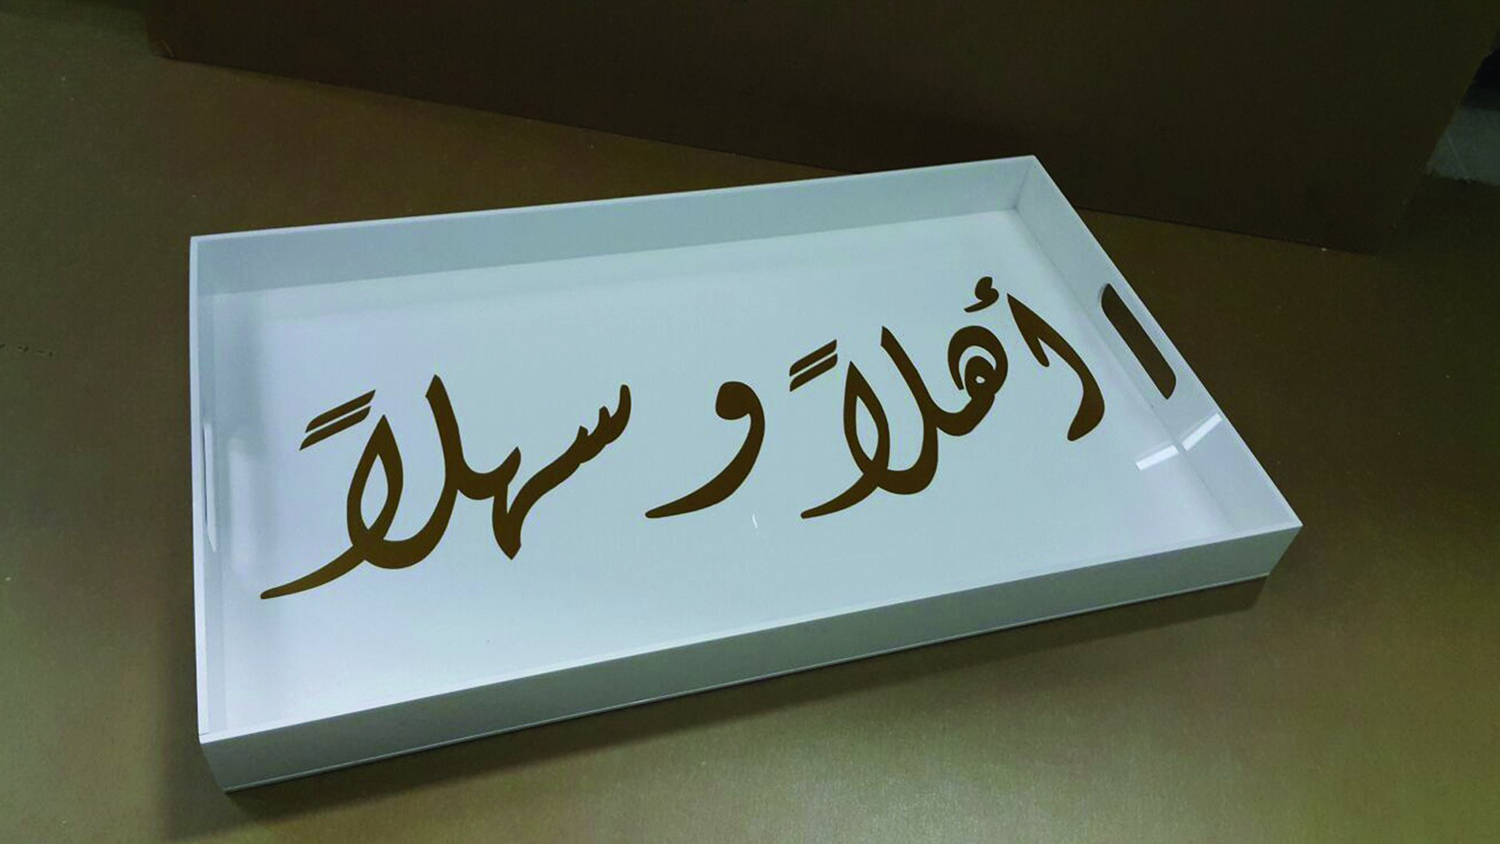 أهلاً و سهلاً